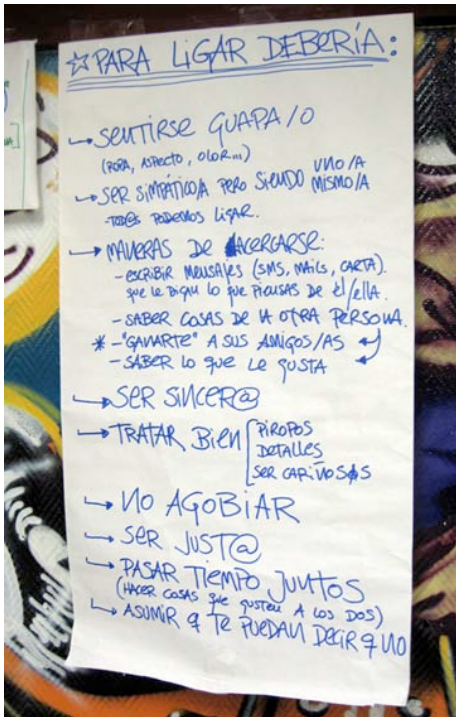 ☆PARA LIGAR DEBERÍA:
→SENTIRSE GUAPA/O
(ROPA, ASPECTO, OLOR...)
→SER SIMPÁTICO/A PERO SIENDO UNO/A MISMO/A
-TOD@S PODEMOS LIGAR.
→MANERAS DE ACERCARSE:
-ESCRIBIR MENSAJES (SMS, MAILS, CARTA).
QUE LE DIGAN LO QUE PIENSAS DE ÉL/ELLA.
-SABER COSAS DE LA OTRA PERSONA.
* -"GANARTE" A SUS AMIGOS/AS
-SABER LO QUE LE GUSTA
→SER SINCER@
→TRATAR BIEN [PIROPOS
DETALLES
SER CARIÑOSOS
→NO AGOBIAR
→SER JUST@
→PASAR TIEMPO JUNTOS
(HACER COSAS QUE GUSTEN A LOS DOS)
→ASUMIR q TE PUEDAN DECIR q NO